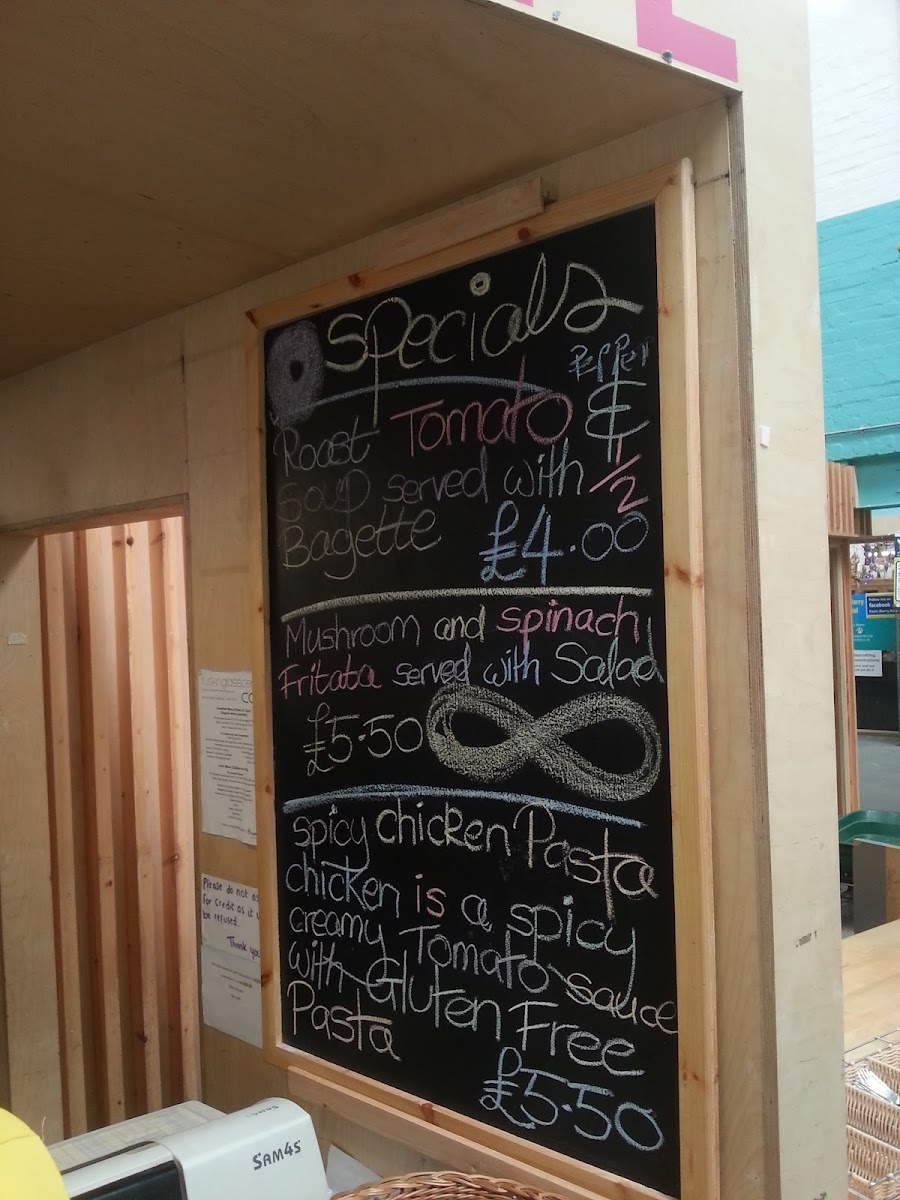 specials
Pepper
Roast Tomato &
Soup served with 1/2
Bagette £4.00
Mushroom and spinach
Fritata served with Salad
£5.50
spicy chicken Pasta
chicken is a spicy
creamy Tomato sauce
with Gluten Free
Pasta
£5.50
Please do not as
for credit as it
be refused.
Thank you
SAM4S
facebook